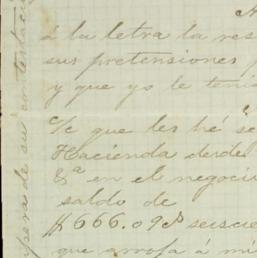 á la letra la res
sus pretensiones
y que yo le tenia
Se que les hé se
Hacienda desde
&ª en el negoci
saldo de
$666.09 cs seiscie
que arroja á mi
esperada su contestaci